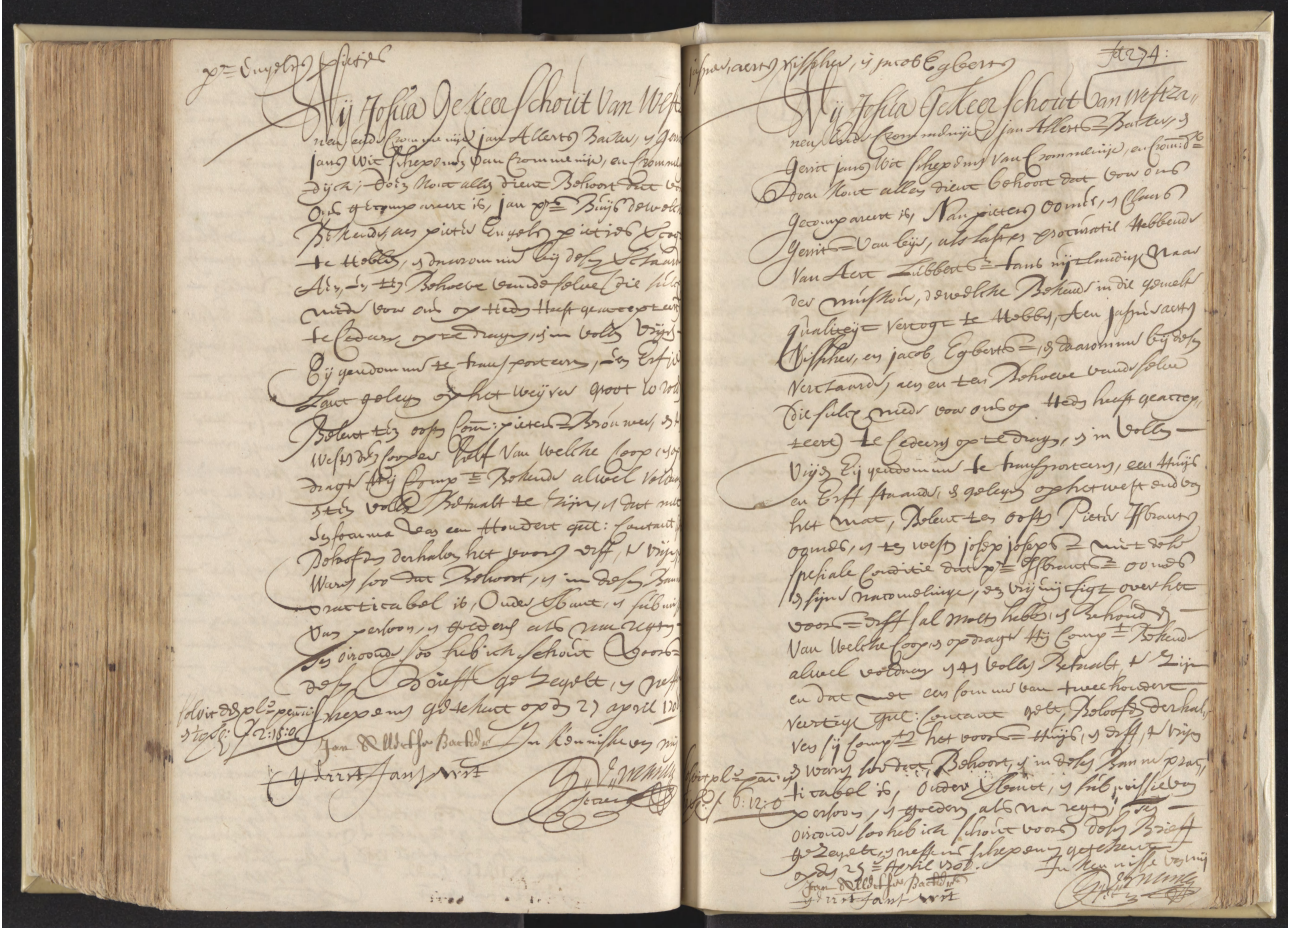 pr Engels pieties
Wij Josua Gekeer Schout van Westz
nen ende Crommenije, Jan Allerts Backer, en Gerri
Jans Wit Schepens van Crommenije, en Cromme
dijck, Doen Kont allen dient Behoort dat v
Ons gecompareert is, Jan prs Buijs dewelck
Bekende aen pieter Engels pieties
te Hebben, en daeromme bij desen
Aen, en ten Behoeve vande selve (die sulcx
mede voor ons op Heden Heeft geaccepteert
te Cederen op te dragen, en in vollen vrijen
Eijgendomme te transporteren, een Erf
Lant gelegen op het weijver groot 10 roe
Belent ten oosten Corn: pieters Brouwer, en t
Westen den Cooper self van welcke Coop en
dragt Hij Comp Bekende al wel vol
en ten vollen Betaelt te zijn, en dat met
een somme van een Hondert gul: Contant
Beloofden derhalven het voors erff, te vrijen
waren soo dat Behoort, en in desen Banne
practicabel is, Onder Verbant, en submi
van persoon, en goederen als nae regten
In oirconde soo heb ick Schout voors
desen Brieff gezegelt, en neff
Schepenen getekent op den 27 april 170
Solvit den
f 2:15:0
Jan Allertse Backer
In Kennisse van mij
Gerrit Jans Wit
Jasper aerts Visscher, en Jacob Egberts
fo 274:
Wij Josua Gekeer Schout van Westza
nen ende Crommenije, Jan Allerts Backer, en
Gerrit Jans Wit Schepens van Crommenije, en Crom:dk
Doen Kont allen dient behoort dat voor ons
gecompareert is Nan pieters oomes, en Claes
Gerrits van Leije, als last en procuratie Hebbende
van Aert Lubberts tans uijtlandig naar
der muskou, dewelcke Bekende in die gemelte
qualiteijt vercogt te Hebben, Aen Jasper aerts
Visscher, en Jacob Egberts, en daeromme bij desen
verclaarde, aen en ten Behoeve vande selve
(die sulcx mede voor ons op Heden heeft geaccep
teert) te Cederen op te dragen, en in vollen
vrijen Eijgendomme te transporteren, een Huijs
en Erff staande, en gelegen op het west end van
het mat, Belent ten oosten Pieter IJsbrants
oomes, en ten westen Josep Joseps met dese
spesiale Conditie dat pr IJsbrants oomes
en sijne nacomelinge, een vrij over het
voors erff sal moeten hebben, en Behouden
van welcke Coop, en opdragt Hij Comp Bekende
al wel voldaen en ten vollen Betaelt te zijn
en dat met een somme van twee hondert
veertigh gul: Contant gelt, Beloofde derhal
ven sij Compten het voors Huijs, en Erff, te vrijen
en waren soo dat Behoort, en in desen Banne prac
ticabel is, onder Verbant, en submissie van
persoon, en goederen als na regten, In
oirconde soo heb ick Schout voors desen Brieff
gezegelt, en neffens Schepenen getekent
op den 27 April 1701.
In Kennisse van mij
f 6:12:0
Jan Allertse Backer
Gerrit Jans Wit